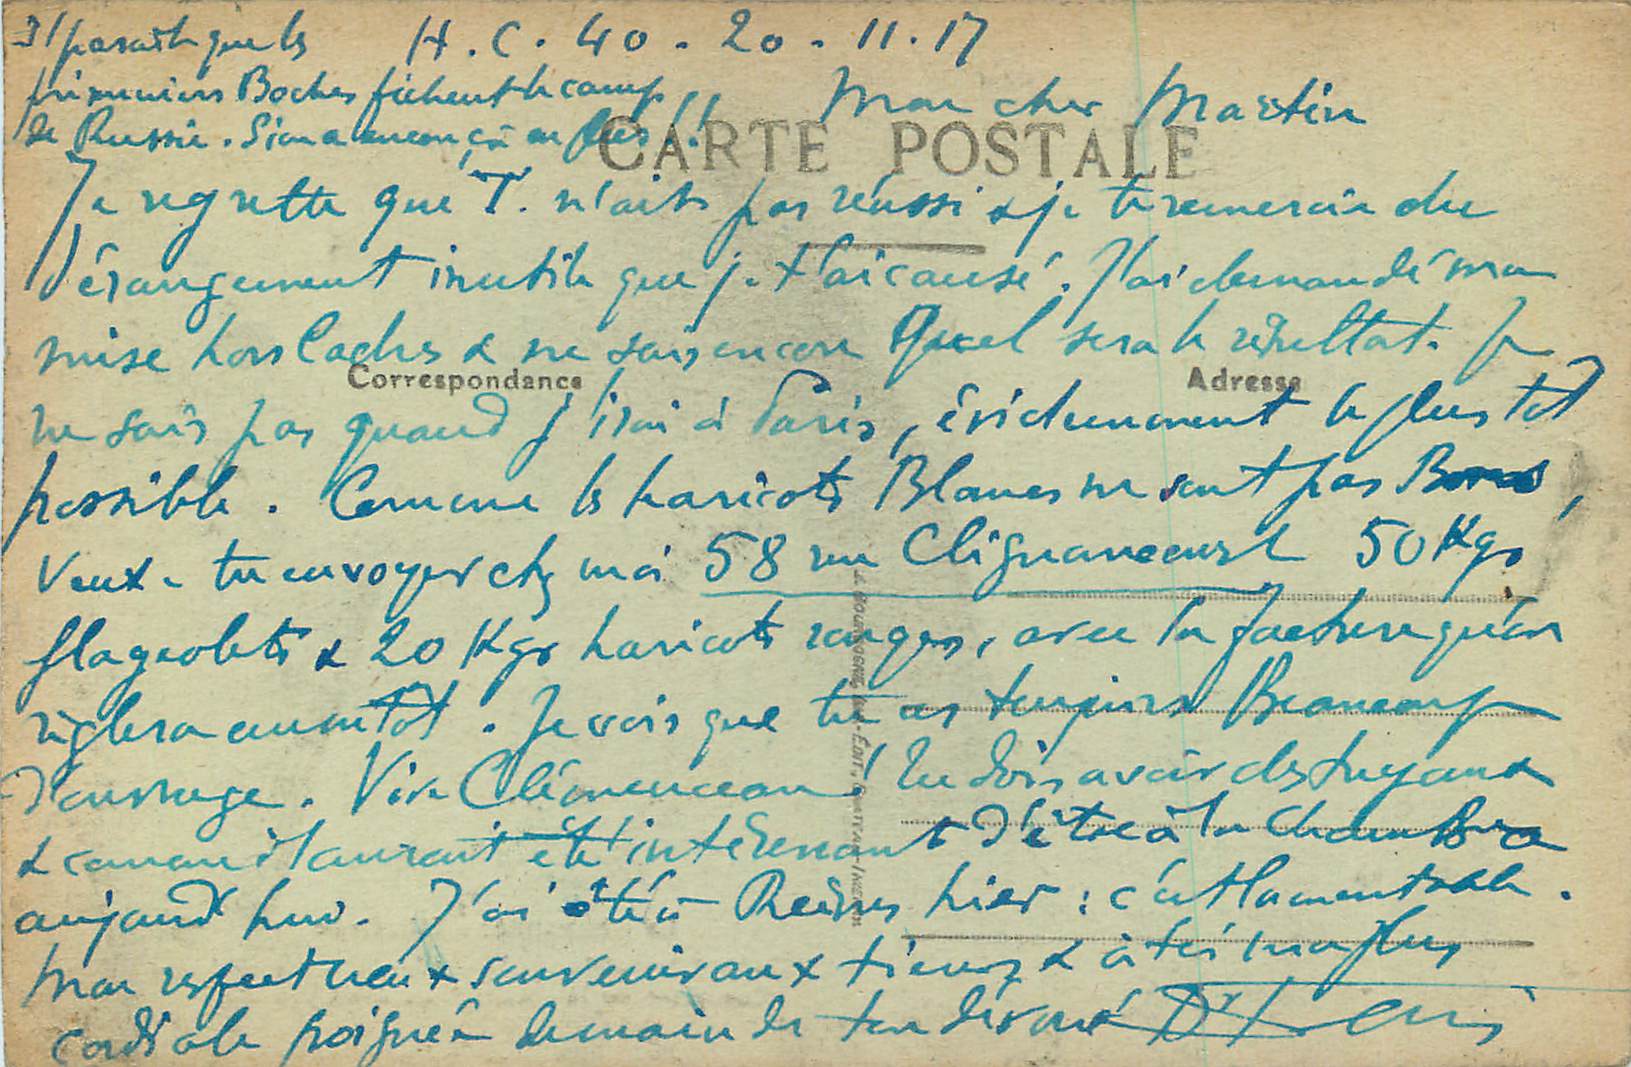 Il paraît que les
prisonniers Boches fichent le camp
de Russie. Si on a encore ça en plus !!
H. C. 40 - 20 - 11. 17
Mon cher Martin
CARTE POSTALE
Je regrette que T. n'ait pas réussi & je te remercie du
dérangement inutile que je t'ai causé. J'ai demandé ma
mise hors Cadres & ne sais encore quel sera le résultat. Je
Correspondance
Adresse
ne sais pas quand j'irai à Paris, évidemment le plus tôt
possible. Comme les haricots Blancs ne sont pas Bons,
Veux-tu envoyer chez moi 58 rue Clignancourt 50 Kgs
flageolets & 20 Kgs haricots rouges, avec la facture qu'on
règlera aussitôt. Je vois que tu as toujours Beaucoup
d'ouvrage. Vive Clémenceau ! Tu dois avoir des tuyaux
& comme il aurait été intéressant d'être à la Chambre
aujourd'hui. J'ai été à Reims hier : c'est lamentable.
Mon respectueux souvenir aux tiens & à toi ma plus
cordiale poignée de main de ton dévoué Dr